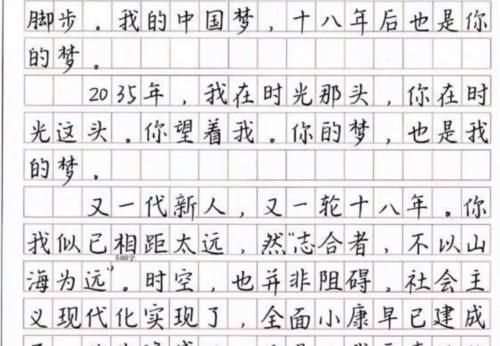 脚步。我的中国梦，十八年后也是你
的梦。
2035年，我在时光那头，你在时
光这头。你望着我。你的梦，也是我
的梦。
又一代新人，又一轮十八年。你
我似已相距太远，然“志合者，不以山
500字
海为远”。时空，也并非阻碍，社会主
义现代化实现了，全面小康早已建成